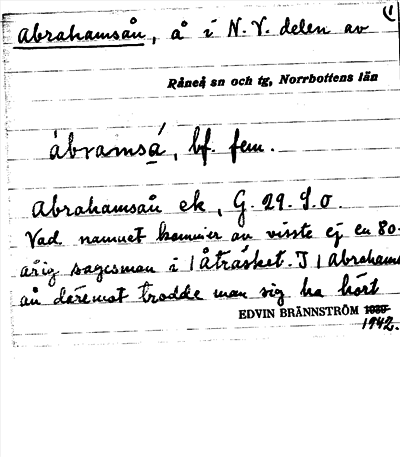 Abrahamsån, å i N.V. delen av (1
Råneå sn och tg, Norrbottens län
ábramsá, bf. fem.
Abrahamsån ek, G. 29. S.O.
Vad namnet kommer av visste ej en 80-
årig sagesman i | Åträsket. I | Abrahams
ån däremot trodde man sig ha hört
EDVIN BRÄNNSTRÖM
1942.